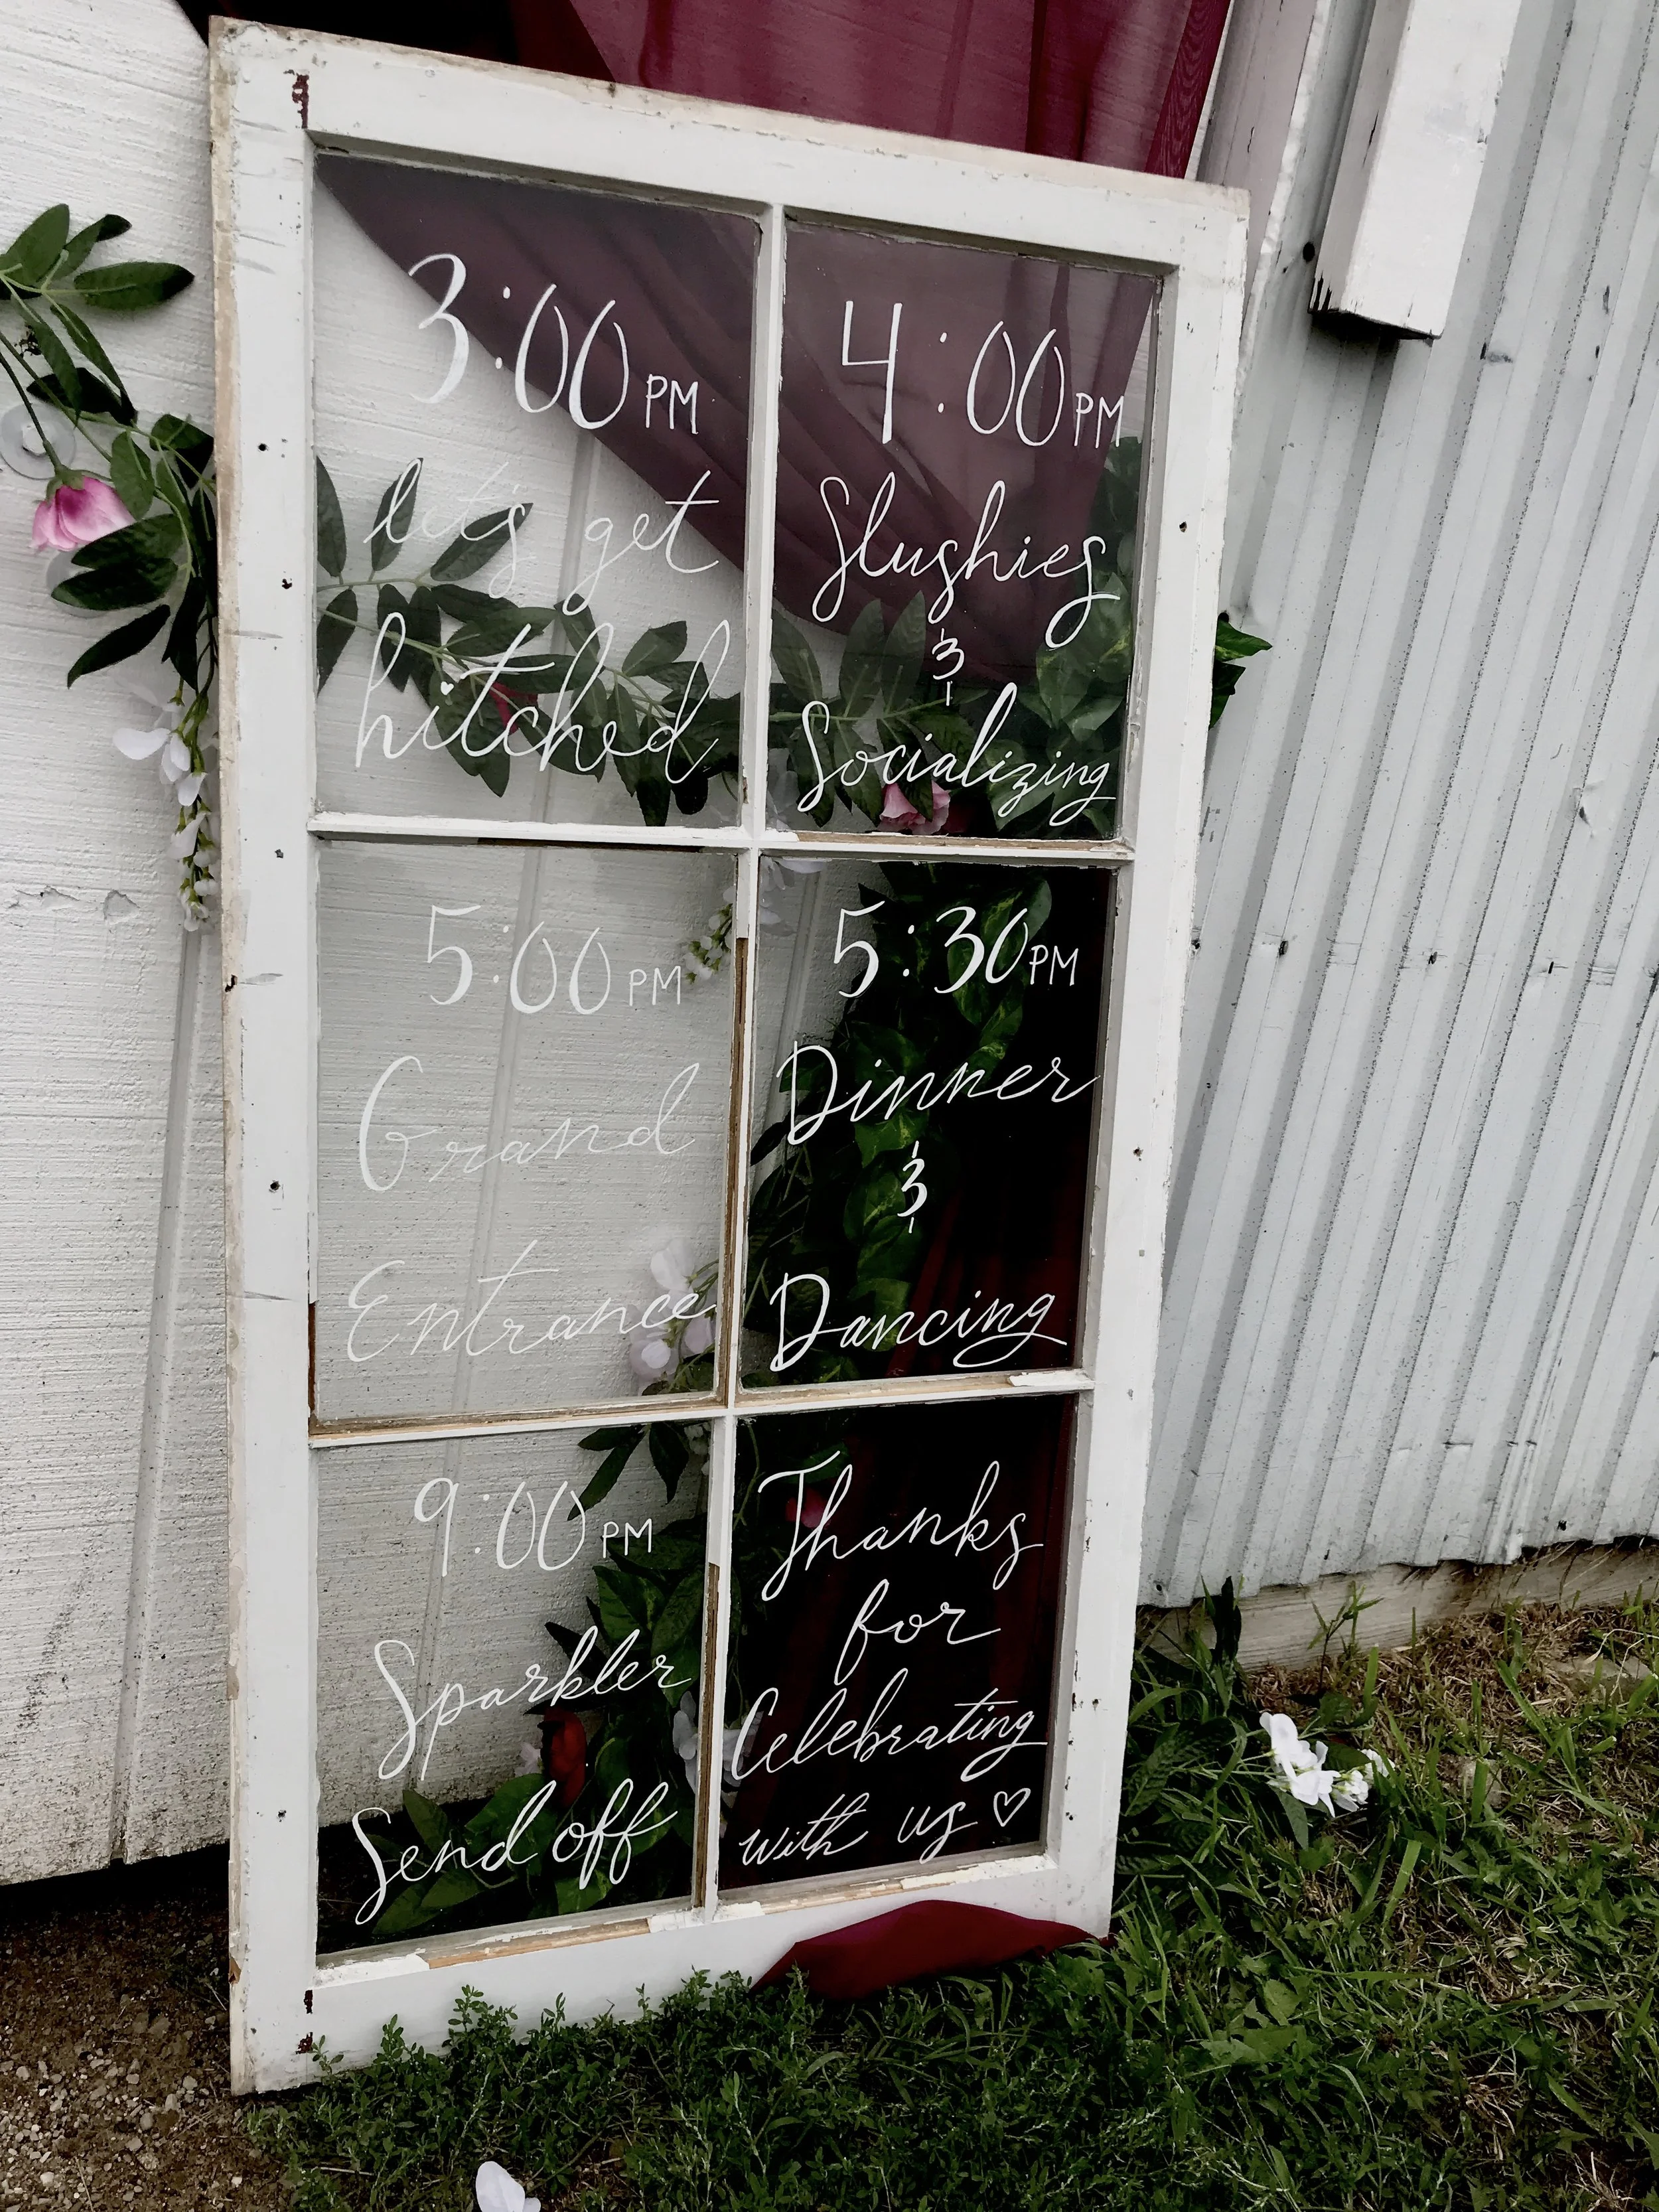 3:00 PM
let's get
hitched
4:00 PM
Slushies
&
Socializing
5:00 PM
Grand
Entrance
5:30 PM
Dinner
&
Dancing
9:00 PM
Sparkler
Send off
Thanks
for
Celebrating
with us ♡